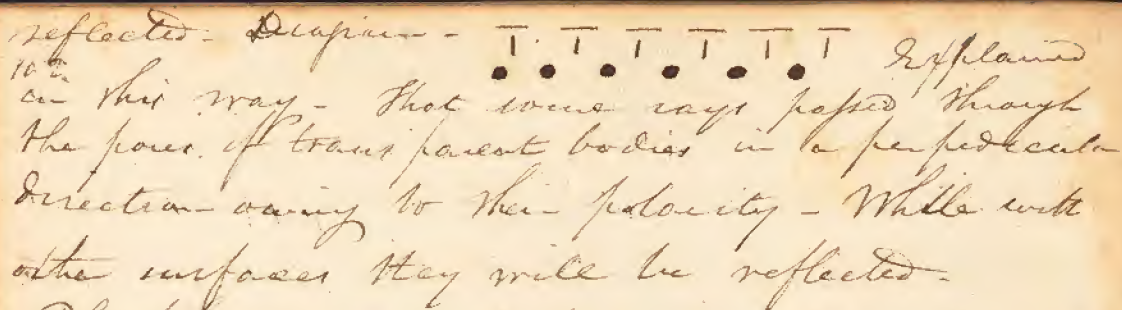 reflected - Diagram - T T T T T T Explained
in this way - That some rays passed through
the pores of transparent bodies in a perpedicular
direction owing to their polarity - While with
other surfaces they will be reflected -